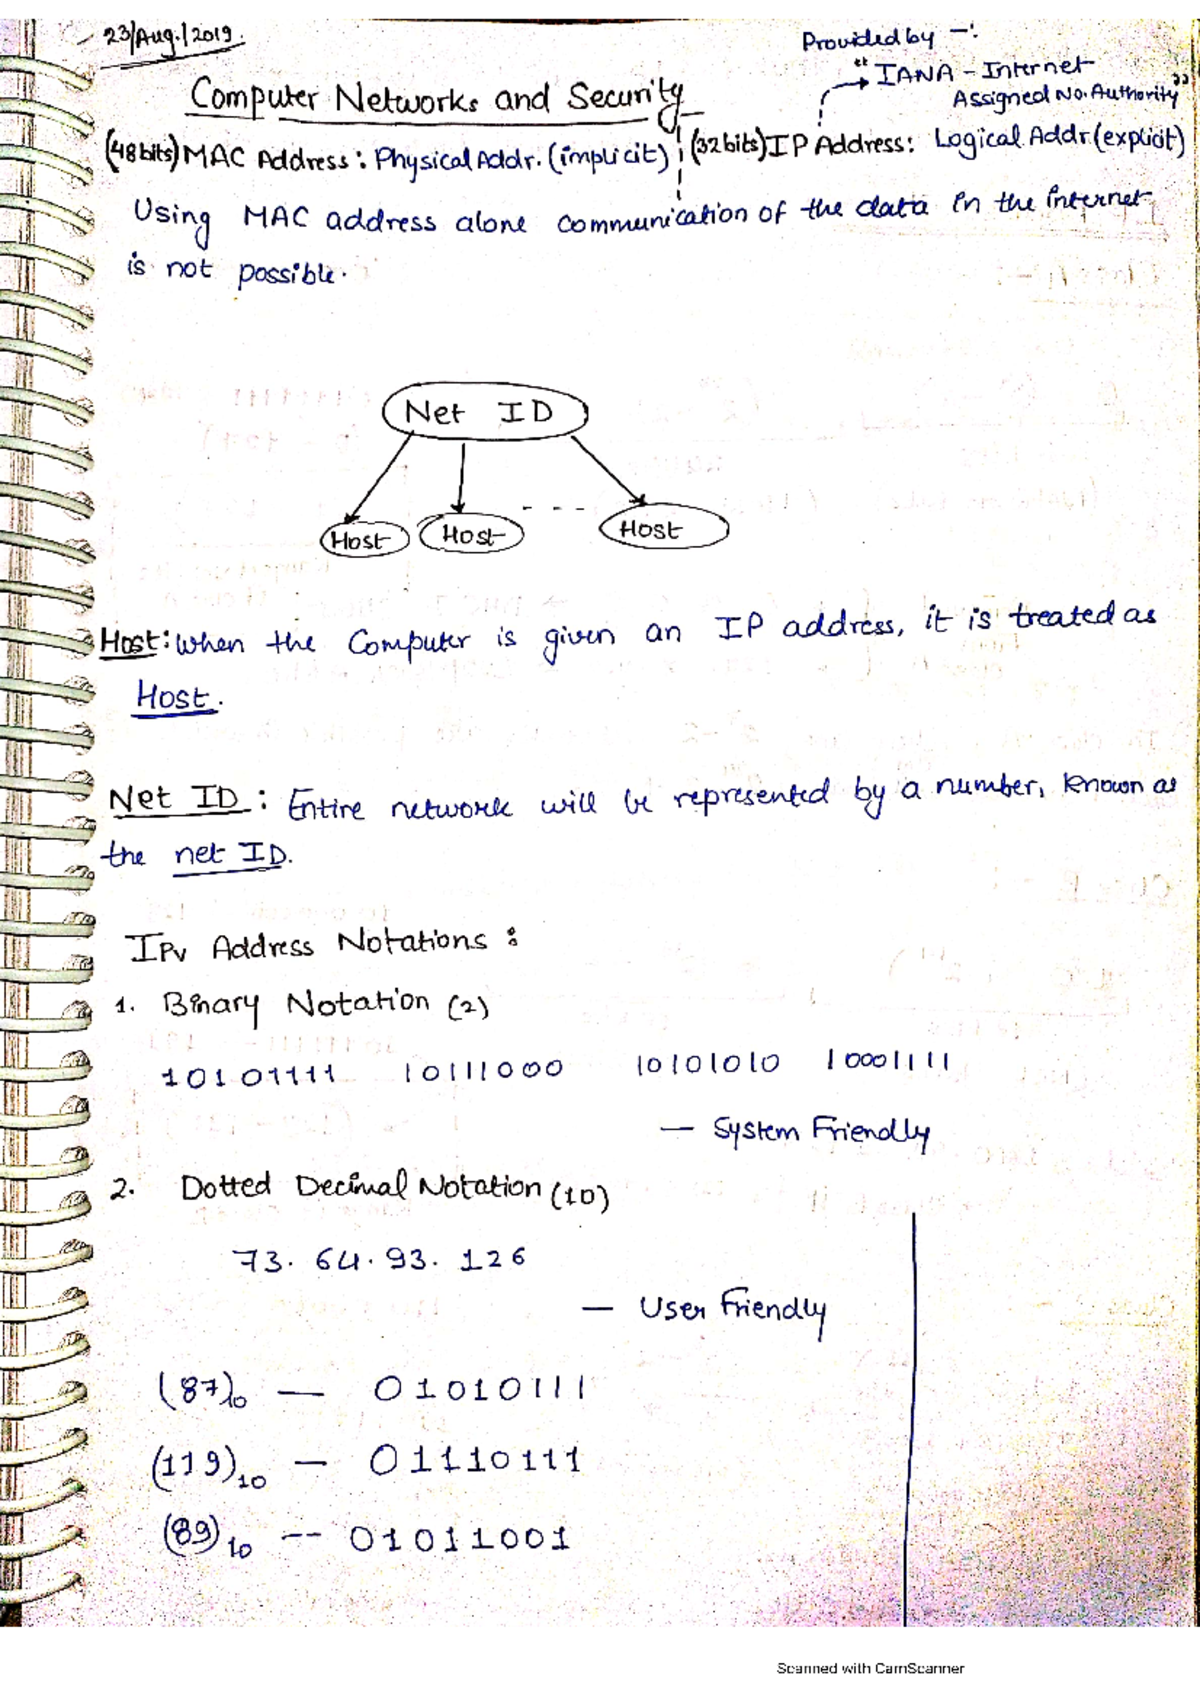 23/Aug./2019.
Provided by -:
"IANA - Internet
Assigned No. Authority"
Computer Networks and Security
(48 bits) MAC Address : Physical Addr. (implicit) (32 bits) IP Address: Logical Addr. (explicit)
Using MAC address alone communication of the data in the internet
is not possible.
Net ID
Host Host - - - Host
Host: When the Computer is given an IP address, it is treated as
Host.
Net ID : Entire network will be represented by a number, known as
the net ID.
IPv Address Notations :
1. Binary Notation (2)
10101111 10111000 10101010 10001111
— System Friendly
2. Dotted Decimal Notation (10)
73. 64. 93. 126
— User Friendly
(87)10 — 01010111
(119)10 — 01110111
(89)10 -- 01011001
Scanned with CamScanner